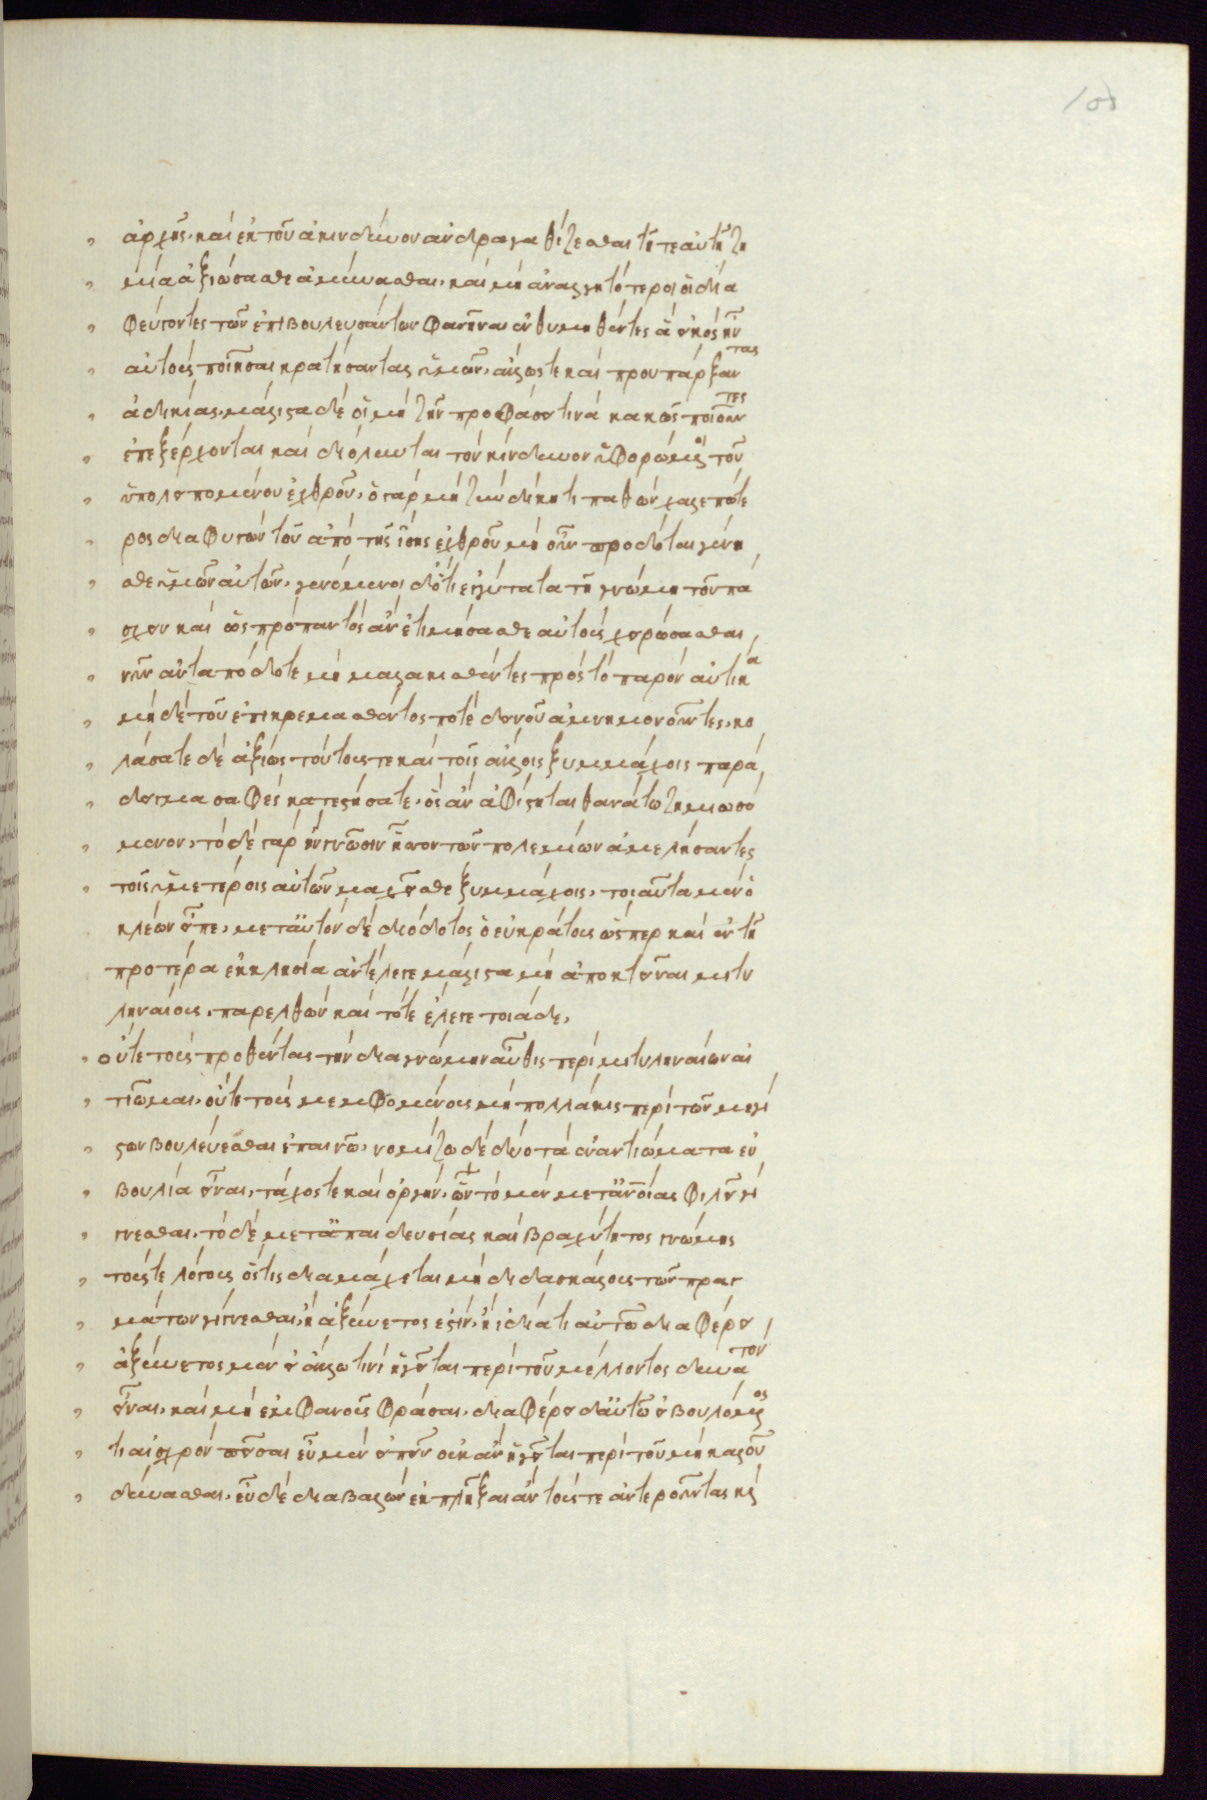 ἀρχῆς· καὶ ἐκ τοῦ ἀκινδύνου ἀνδραγαθίζεσθαι τῆ τε αὐτῆ ζη
μία ἀξιώσασθε ἀμύνασθαι· καὶ μὴ ἀναλγητότεροι οἱ δια
φεύγοντες τῶν ἐπιβουλευσάντων φανῆναι ἐνθυμηθέντες ἃ εἰκὸς ἦν
αὐτοὺς ποιῆσαι κρατήσαντας ὑμῶν· ἄλλως τε καὶ προυπάρξαντας
ἀδικίας· μάλιστα δὲ οἱ μὴ ξὺν προφάσει τινὰ κακῶς ποιοῦντες
ἐπεξέρχονται καὶ διόλυνται τὸν κίνδυνον ὑφορώμενοι τοῦ
ὑπολειπομένου ἐχθροῦ· ὁ γὰρ μὴ ξὺν δίκη τι παθὼν χαλεπώτε
ρος διαφυγὼν τοῦ ἀπὸ τῆς ἴσης ἐχθροῦ μὴ οὖν προδόται γένη
σθε ὑμῶν αὐτῶν· γενόμενοι δ' ὅτι ἐγγύτατα τῆ γνώμη τοῦ πά
σχειν καὶ ὡς πρὸ παντὸς ἂν ἐτιμήσασθε αὐτοὺς χειρώσασθαι
νῦν ἀνταπόδοτε μὴ μαλακισθέντες πρὸς τὸ παρὸν αὐτίκα
μηδὲ τοῦ ἐπικρεμασθέντος ποτὲ δεινοῦ ἀμνημονοῦντες· κο
λάσατε δὲ ἀξίως τούτους τε καὶ τοῖς ἄλλοις ξυμμάχοις παρά
δειγμα σαφὲς καταστήσατε· ὃς ἂν ἀφίστηται θανάτω ζημιωσό
μενον· τόδε γὰρ ἢν γνῶσιν ἧσσον τῶν πολεμίων ἀμελήσαντες
τοῖς ὑμετέροις αὐτῶν μαχεῖσθε ξυμμάχοις· τοιαῦτα μὲν ὁ
κλέων εἶπε· μετ' αὐτὸν δὲ διόδοτος ὁ εὐκράτους ὥσπερ καὶ ἐν τῆ
προτέρα ἐκκλησία ἀντέλεγε μάλιστα μὴ ἀποκτεῖναι μιτυ
ληναίους· παρελθὼν καὶ τότε ἔλεγε τοιάδε·
οὔτε τοὺς προθέντας τὴν διαγνώμην αὖθις περὶ μιτυληναίων αἰ
τιῶμαι· οὔτε τοὺς μεμφομένους μὴ πολλάκις περὶ τῶν μεγί
στων βουλεύεσθαι ἐπαινῶ· νομίζω δὲ δύο τὰ ἐναντιώτατα εὐ
βουλία εἶναι· τάχος τε καὶ ὀργήν· ὧν τὸ μὲν μετ' ἀνοίας φιλεῖ γί
γνεσθαι· τὸ δὲ μετ' ἀπαιδευσίας καὶ βραχύτητος γνώμης
τούς τε λόγους ὅστις διαμάχεται μὴ διδασκάλους τῶν πραγ
μάτων γίγνεσθαι· ἢ ἀξύνετός ἐστιν· ἢ ἰδία τι αὐτῶ διαφέρει
ἀξύνετος μὲν εἰ ἄλλω τινὶ ἡγεῖται περὶ τοῦ μέλλοντος δυνατὸν
εἶναι· καὶ μὴ ἐμφανοῦς φράσαι· διαφέρει δ' αὐτῶ εἰ βουλόμενος
τι αἰσχρὸν πεῖσαι εὖ μὲν εἰπεῖν οὐκ ἂν ἡγεῖται περὶ τοῦ μὴ καλοῦ
δύνασθαι· εὖ δὲ διαβαλὼν ἐκπλῆξαι ἂν τούς τε ἀντεροῦντας καὶ